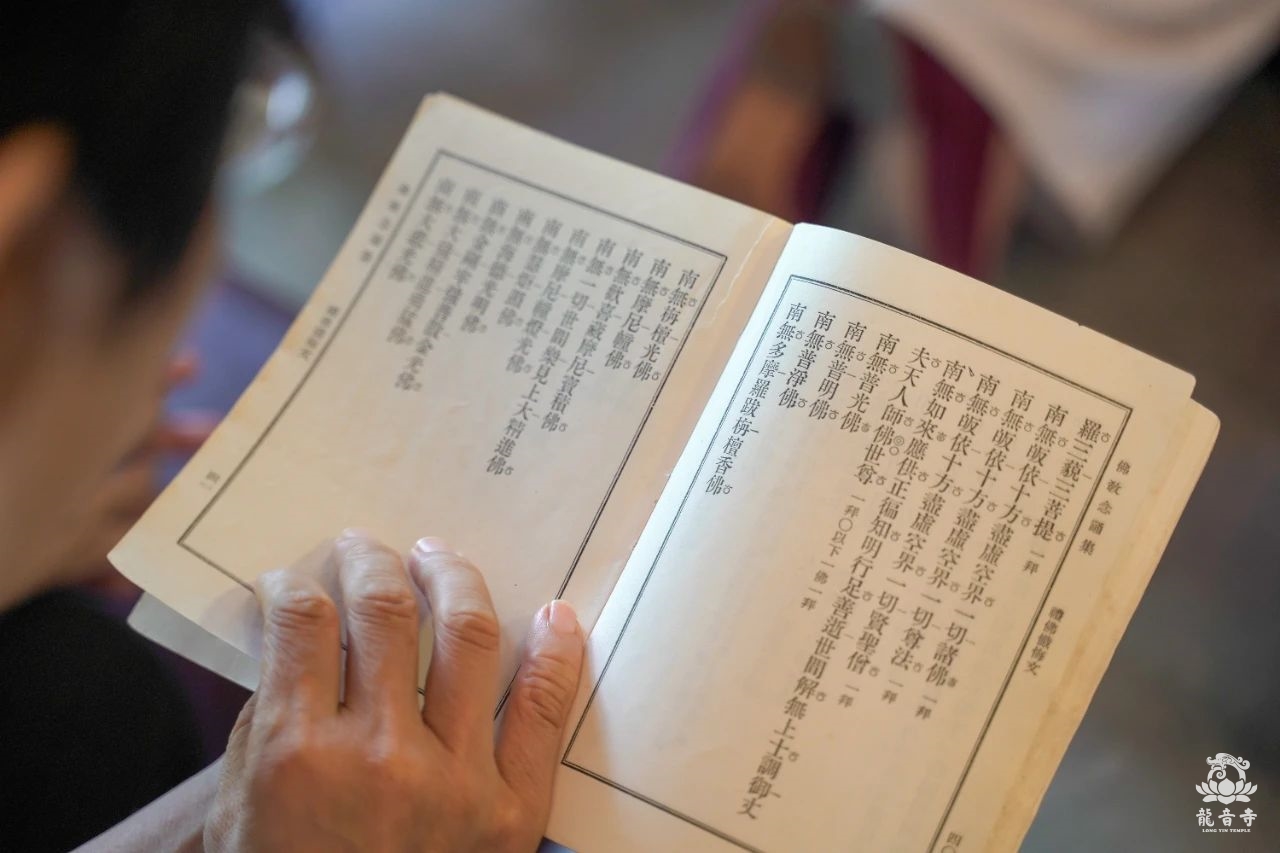 佛教念誦集
禮佛懺悔文
四〇
羅三藐三菩提 一拜
南無皈依十方盡虛空界一切諸佛 一拜
南無皈依十方盡虛空界一切尊法 一拜
南無皈依十方盡虛空界一切賢聖僧 一拜
南無如來應供正徧知明行足善逝世間解無上士調御丈
夫天人師佛世尊 一拜〇以下一佛一拜
南無普光佛
南無普明佛
南無普淨佛
南無多摩羅跋栴檀香佛
南無栴檀光佛
南無摩尼幢佛
南無歡喜藏摩尼寶積佛
南無一切世間樂見上大精進佛
南無摩尼幢燈光佛
南無慧炬照佛
南無海德光明佛
南無金剛牢強普散金光佛
南無大強精進勇猛佛
南無大悲光佛
禮佛懺悔文
四一
龍音寺
LONG YIN TEMPLE